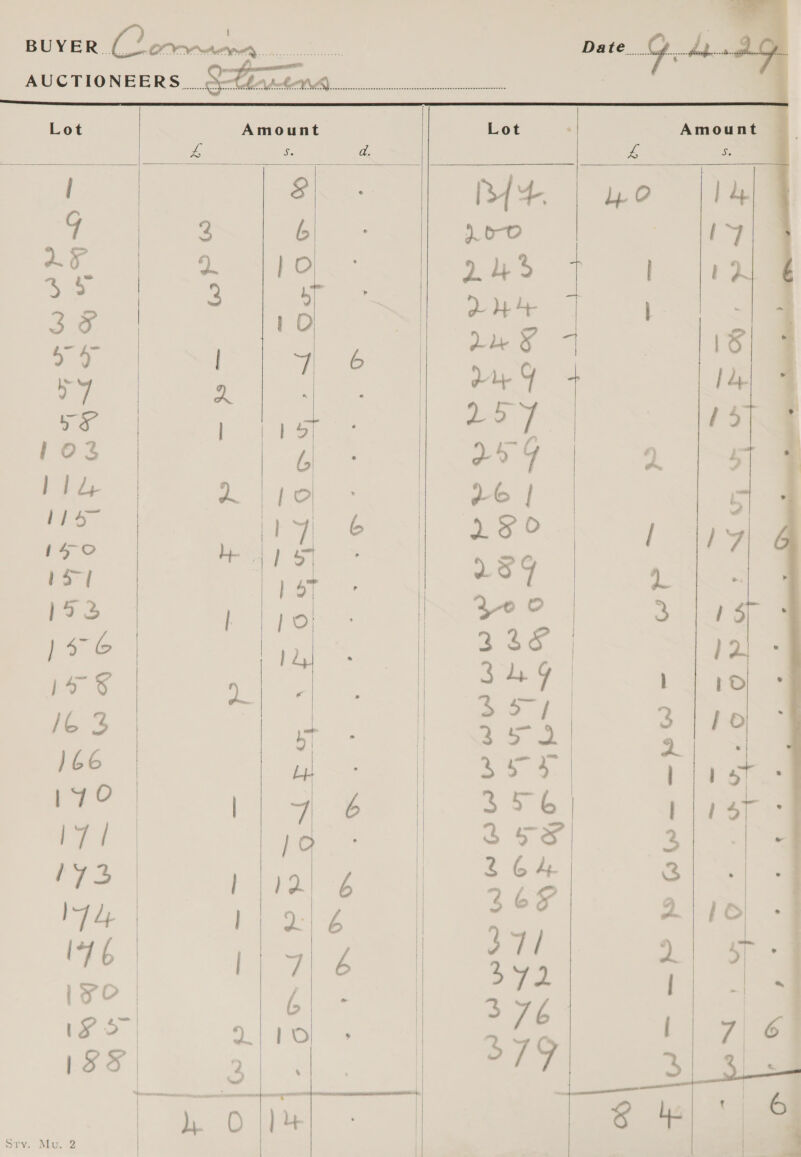 BUYER Comins Date 9.4.29
AUCTIONEERS Stevens
Lot Amount Lot Amount
£ s. d. £ s.
1 8 . B/F. 40 14
9 3 6 . 200 17 .
28 2 10 . 243 - 1 12 6
35 3 5 . 244 - 1 - -
38 10 248 - 18 .
55 1 7 6 249 - 14 .
57 2 . . 257 15 .
58 1 15 . 259 2 5 .
103 6 . 261 5 .
114 2 10 . 280 1 17 6
115 17 6 289 2 . .
150 4 15 . 300 3 15 .
151 15 . 338 12 .
153 1 10 . 349 1 10 .
156 14 . 351 3 10 .
158 2 . . 352 2 . .
163 5 . 355 1 15 .
166 4 . 356 1 15 .
170 1 7 6 358 3 . .
171 10 . 364 3 . .
173 1 12 6 368 2 10 .
174 1 2 6 371 2 5 .
176 1 7 6 372 1 - .
180 6 . 376 1 7 6
185 2 10 . 379 3 3 .
188 3 . .
40 14 . 84 . 6
Srv. Mu. 2